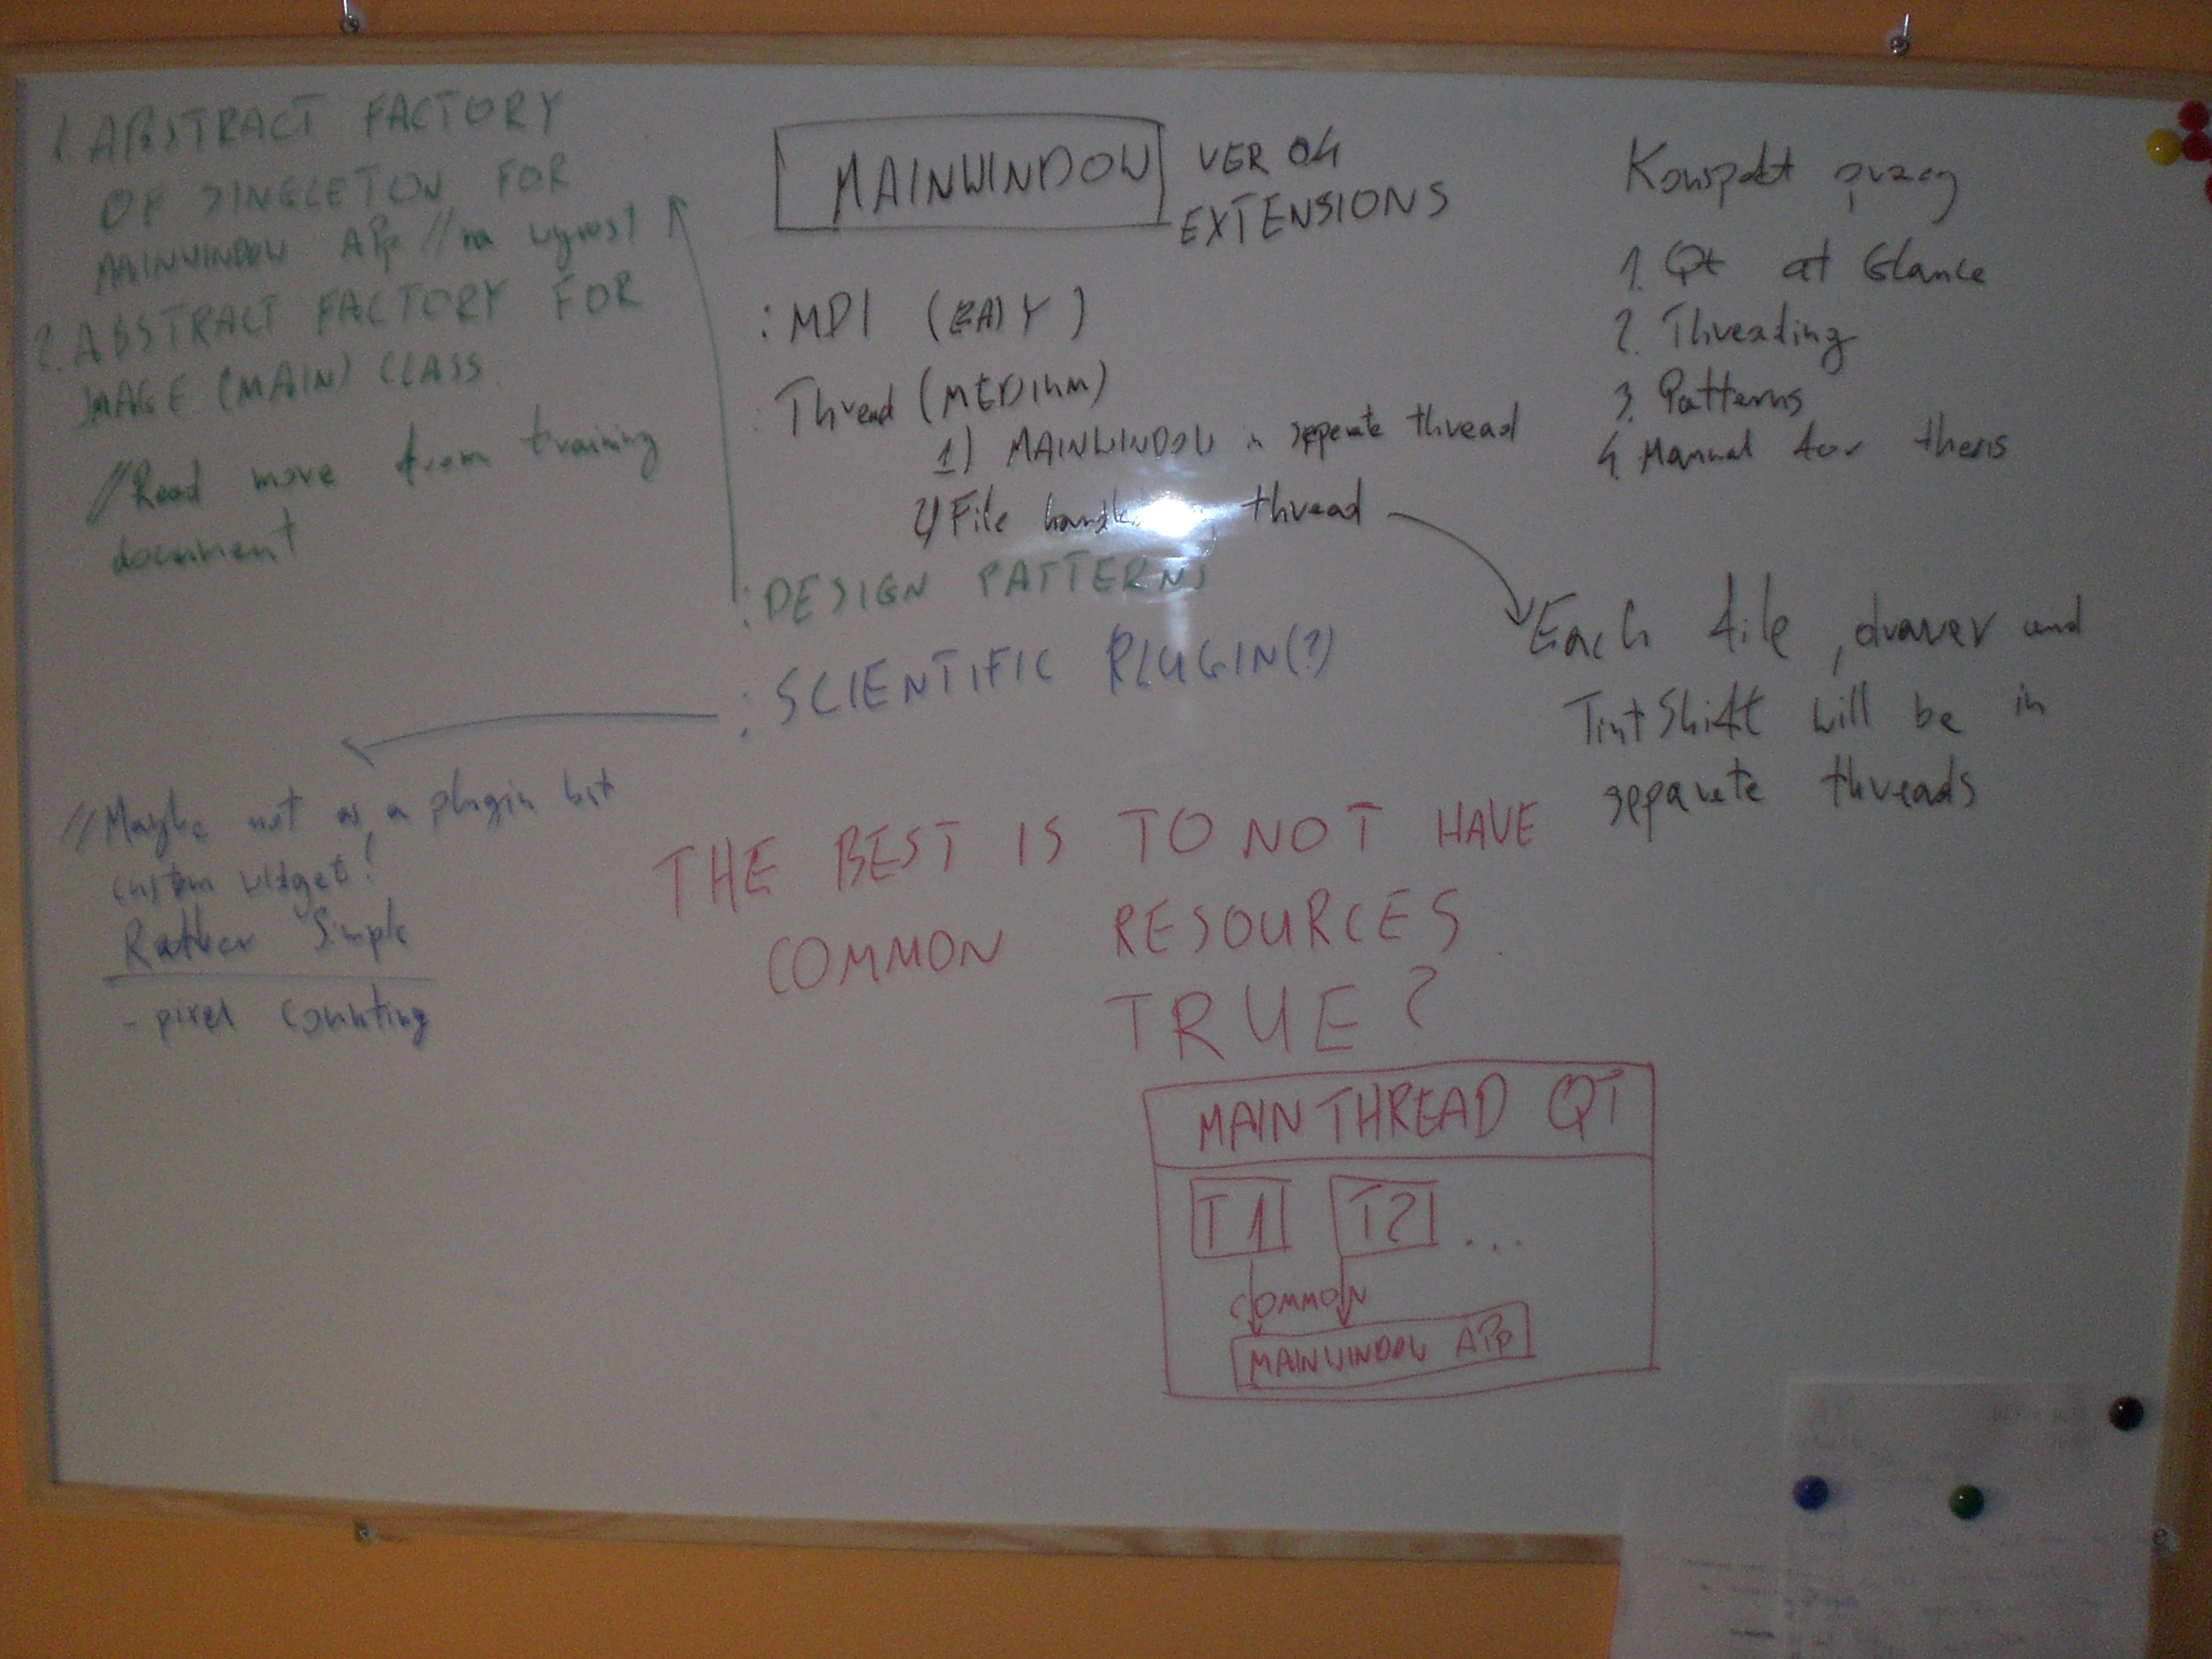 1. ABSTRACT FACTORY
OF SINGLETON FOR
MAINWINDOW APP // na wyrost
2. ABSTRACT FACTORY FOR
IMAGE (MAIN) CLASS
// Read more from training
document
MAINWINDOW
VER 04
EXTENSIONS
: MDI (EASY)
: Thread (MEDIUM)
1) MAINWINDOW in seperate thread
2) File thread
: DESIGN PATTERNS
: SCIENTIFIC PLUGIN(?)
Konspekt pracy
1. Qt at Glance
2. Threading
3. Patterns
4. Manual for thesis
Each file, drawer and
TintShift will be in
seperate threads
// Maybe not as a plugin but
custom widget!
Rather Simple
- pixel counting
THE BEST IS TO NOT HAVE
COMMON RESOURCES
TRUE?
MAIN THREAD QT
T1 T2 ...
COMMON
MAINWINDOW APP